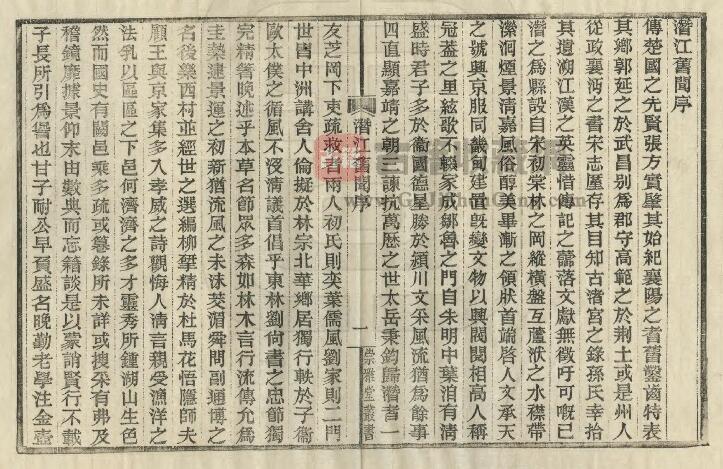 潛江舊聞序
傳楚國之先賢張方實肇其始紀襄陽之耆舊鑿齒特表
其鄉郭延之於武昌別為郡守高範之於荆土或是州人
從政襄沔之書宋志歷存其目知古渚宮之錄孫氏幸拾
其遺溯江漢之英靈惜傳記之零落文獻無徵吁可嘅已
潛之為縣設自宋初棠林之岡縱橫盤互蘆洑之水襟帶
瀠洄煙景清嘉風俗醇美畢漸之領狀首端啓人文承天
之號與京服同畿甸建置旣變文物以興閥閱相高人稱
冠蓋之里絃歌不輟家成鄒魯之門自朱明中葉洎有清
盛時君子多於衞國德星勝於潁川文采風流猶為餘事
四直顯嘉靖之朝一諫抗萬歷之世太岳秉鈞歸潛者一
潛江舊聞序
一
崇雅堂叢書
友芝岡下吏疏救者兩人初氏則奕葉儒風劉家則二門
世冑中洲講舍人倫擬於林宗北華鄉居獨行軼於子衞
歐太僕之循風不沒清議首倡乎東林劉尚書之忠節獨
完精箸晚述乎本草名節眾多森如林木言行流傳允為
圭臬逮景運之初新猶流風之未沬莫湄舜問副通博之
名後樂西村並經世之選編柳挈精於杜馬花悟隱師夫
顧王與京家集多入孝威之詩觀悔人清言親受漁洋之
法乳以區區之下邑何濟濟之多才靈秀所鍾湖山生色
然而國史有闕邑乘多疏或纂錄所未詳或搜采有弗及
稽鏡靡據景仰末由數典而忘籍談是以蒙誚賢行不載
子長所引為咎也甘子耐公早負盛名晚勤老學注金壺